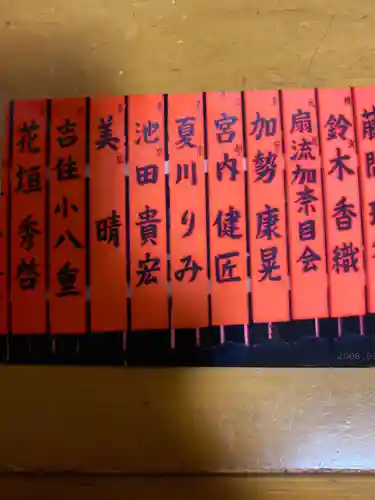 鈴木香織
扇流加奈目会
加勢康晃
宮内健匠
夏川りみ
池田貴宏
美晴
吉住小八重
花垣秀啓
2008.0